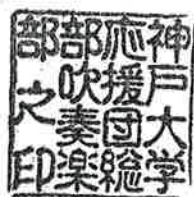 神戸大学
応援団総
部吹奏楽
部之印